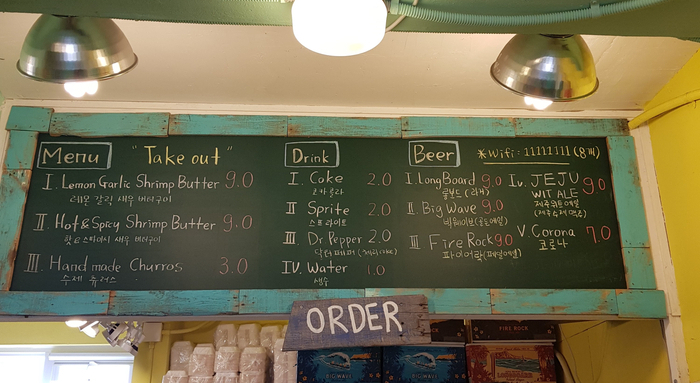 Menu "Take out"
I. Lemon Garlic Shrimp Butter 9.0
레몬 갈릭 새우 버터구이
II. Hot & Spicy Shrimp Butter 9.0
핫&스파이시 새우 버터구이
III. Hand made Churros 3.0
수제 츄러스
Drink
I. Coke 2.0
코카콜라
II. Sprite 2.0
스프라이트
III. Dr. Pepper 2.0
닥터페퍼
IV. Water 1.0
생수
Beer *Wifi: 11111111 (8개)
I. Long Board 9.0
롱보드 (라거)
II. Big Wave 9.0
빅웨이브(골든에일)
III. Fire Rock 9.0
파이어락(페일에일)
IV. JEJU WIT ALE 9.0
제주위트에일
V. Corona 7.0
코로나
ORDER
BIG WAVE
BIG WAVE
FIRE ROCK